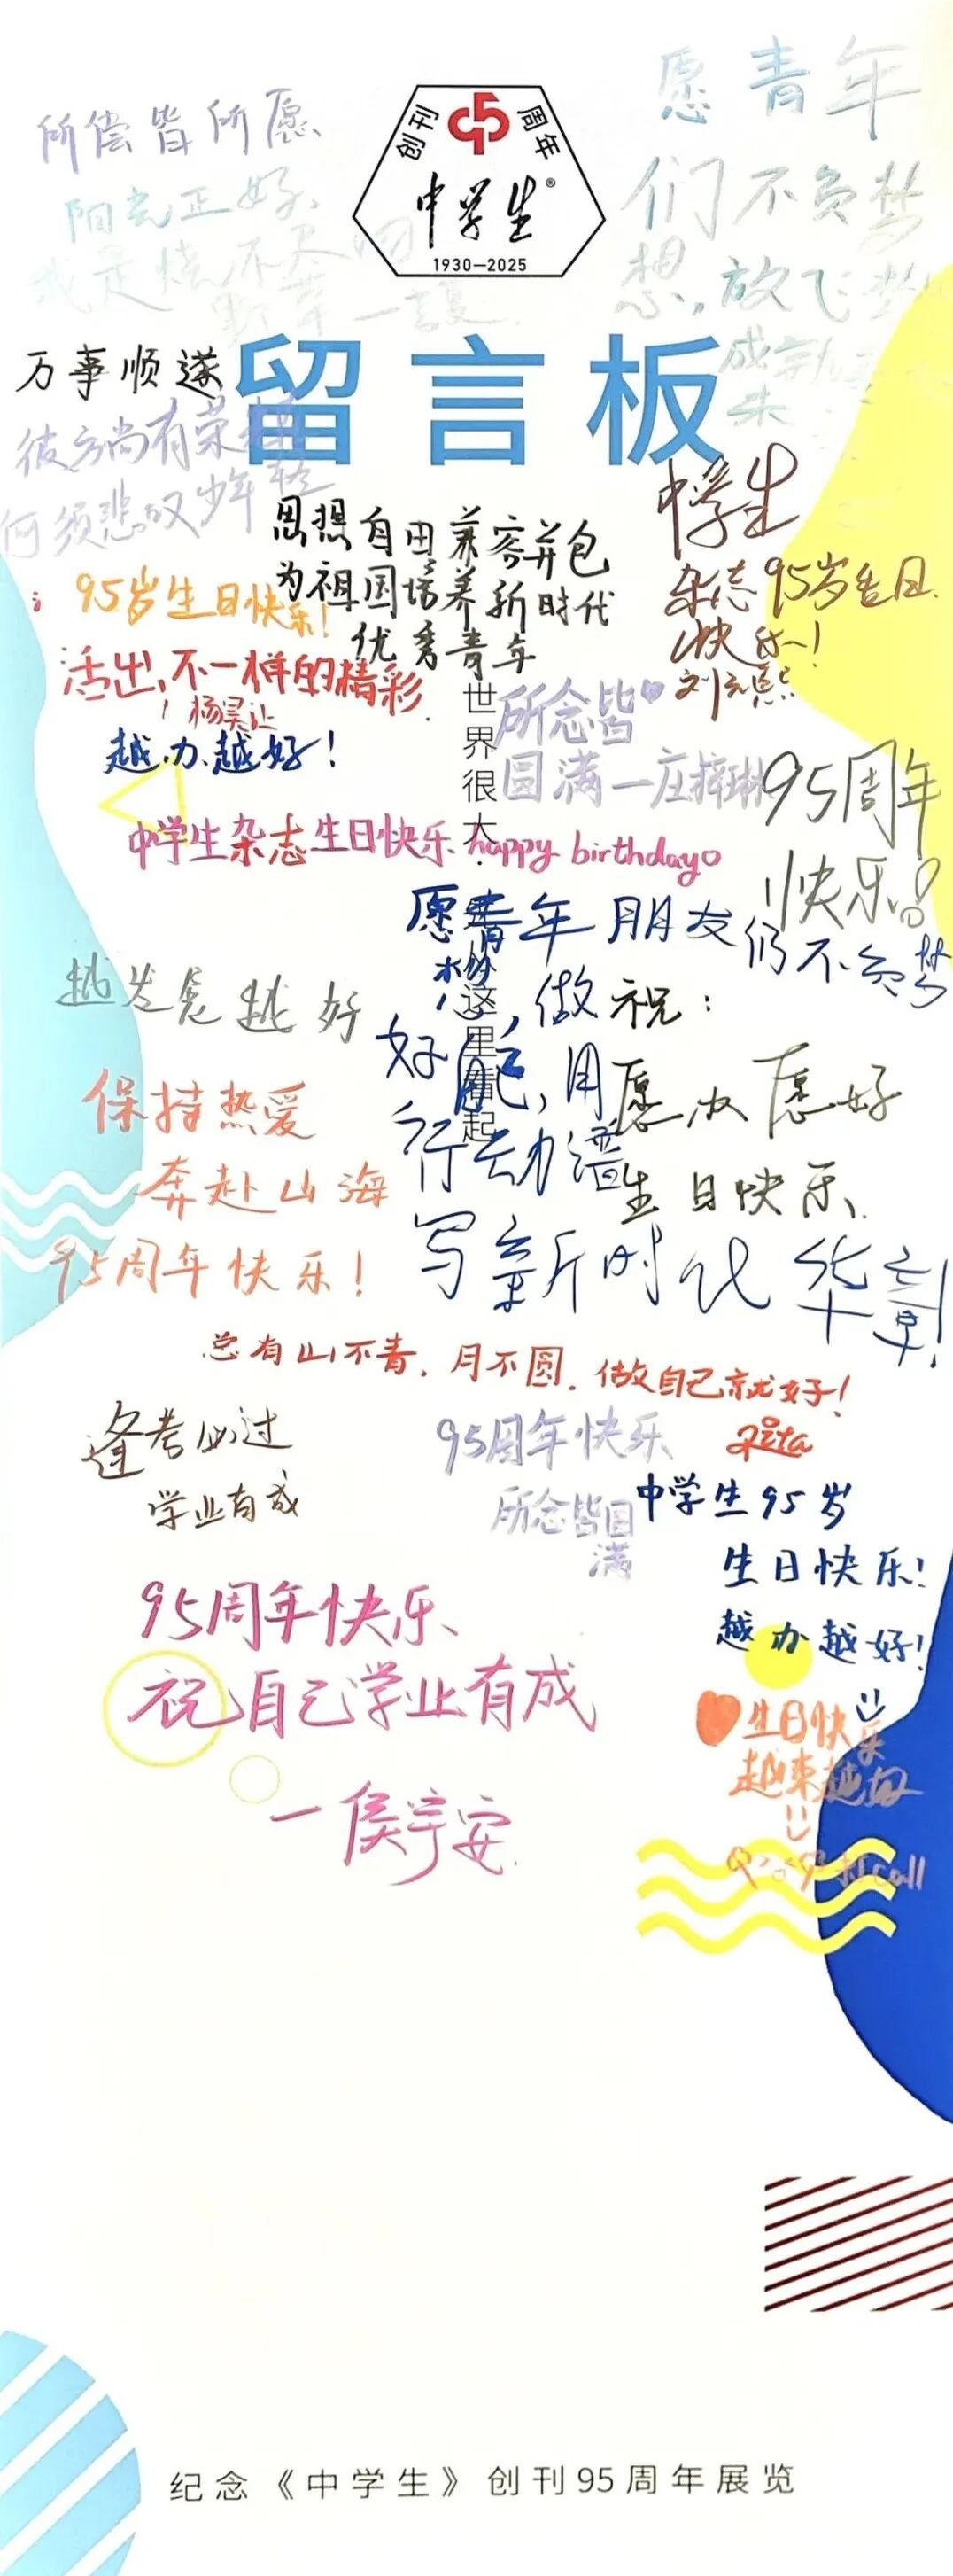 创刊95周年
中学生®
1930—2025
愿青年
们不负梦
想,放飞梦
成就
未
所偿皆所愿
阳光正好,
我是烧不尽的
野草一
留言板
万事顺遂
彼方尚有荣
何须悲叹少年
思想自由兼容并包
为祖国培养新时代
优秀青年
中学生
杂志95岁生日
快乐!
95岁生日快乐!
活出不一样的精彩
越办越好!
世界很大·
这里看起
所念皆
圆满一庄梓琳
95周年
快乐!
中学生杂志生日快乐 happy birthday
愿青年朋友们不负梦
想,做
好自己,用
行动谱
写新时代华章!
越发越好
祝:
愿办愿好
生日快乐
保持热爱
奔赴山海
95周年快乐!
总有山不青,月不圆,做自己就好!
Rita
逢考必过
学业有成
95周年快乐
所念皆圆
满
中学生95岁
生日快乐!
越办越好!
95周年快乐
祝自己学业有成
一侯宇安
生日快乐
越来越好
打call
纪念《中学生》创刊95周年展览